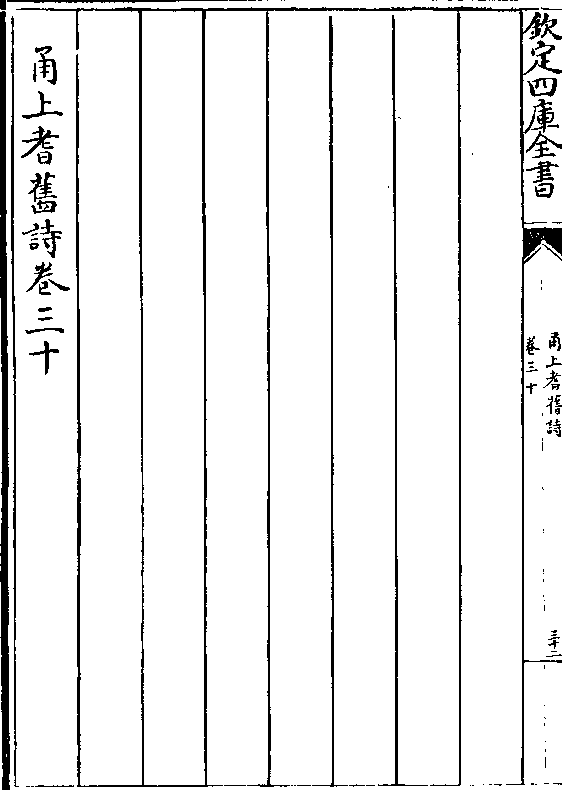 欽定四庫全書
甬上耆舊詩
卷三十
三十二
甬上耆舊詩卷三十